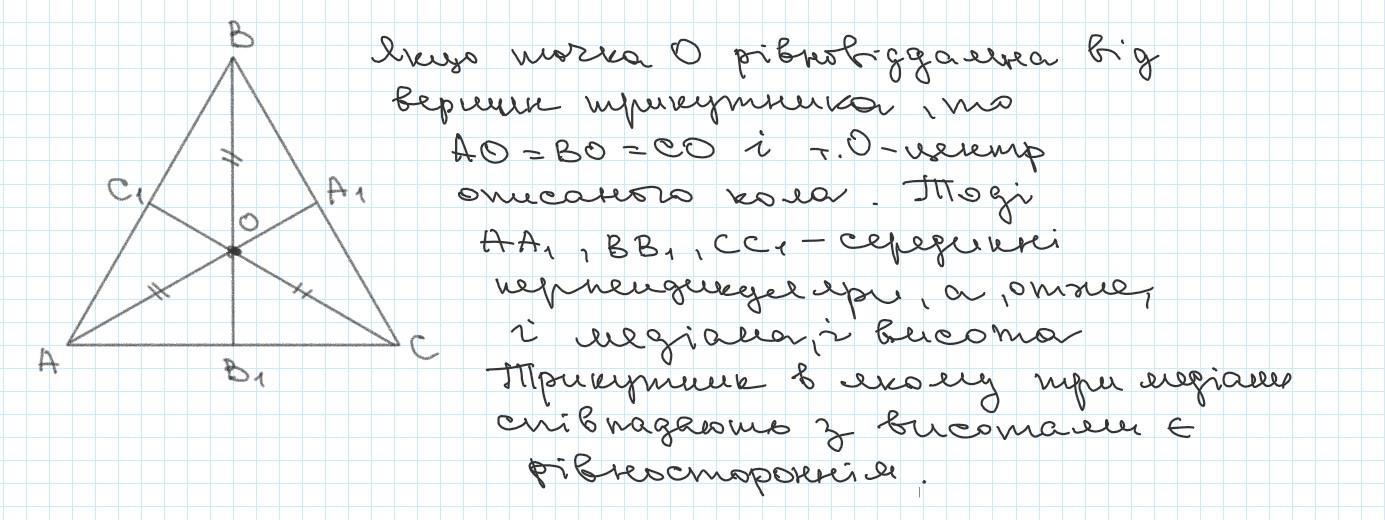 B
Якщо точка О рівновіддалена від
вершин трикутника, то
AO = BO = CO і т.О – центр
C₁ A₁
описаного кола. Тоді
O
AA₁, BB₁, CC₁ – серединні
перпендикуляри, а, отже,
і медіана, і висота
A B₁ C
Трикутник в якому три медіани
співпадають з висотами є
рівностороннім.